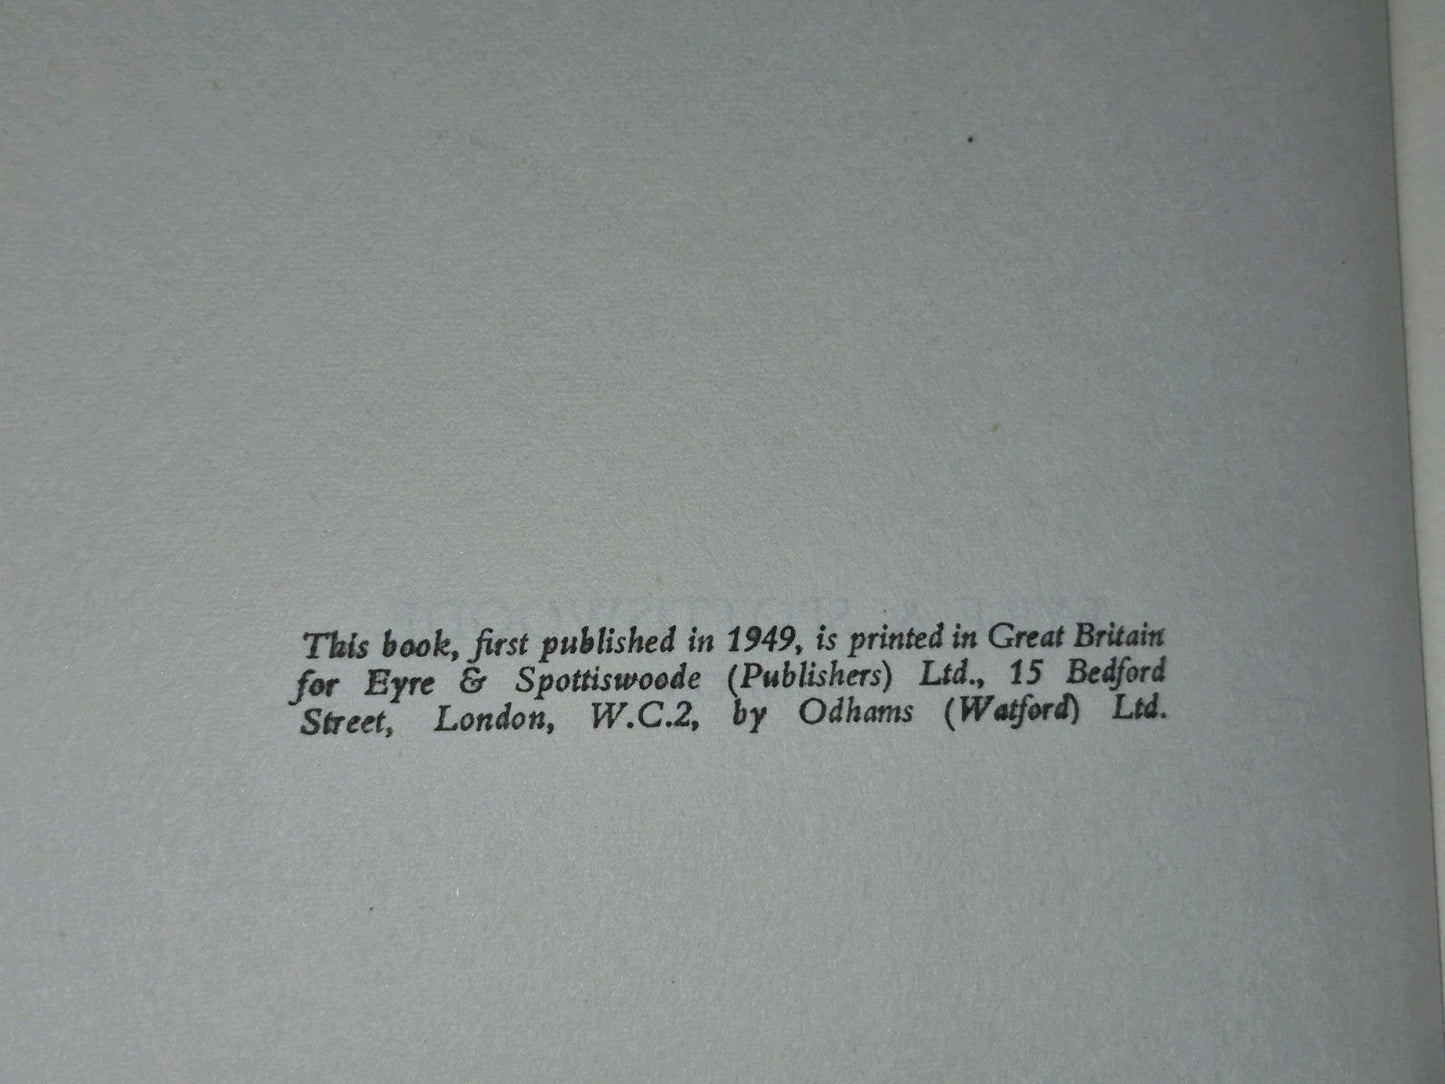 This book, first published in 1949, is printed in Great Britain
for Eyre & Spottiswoode (Publishers) Ltd., 15 Bedford
Street, London, W.C.2, by Odhams (Watford) Ltd.